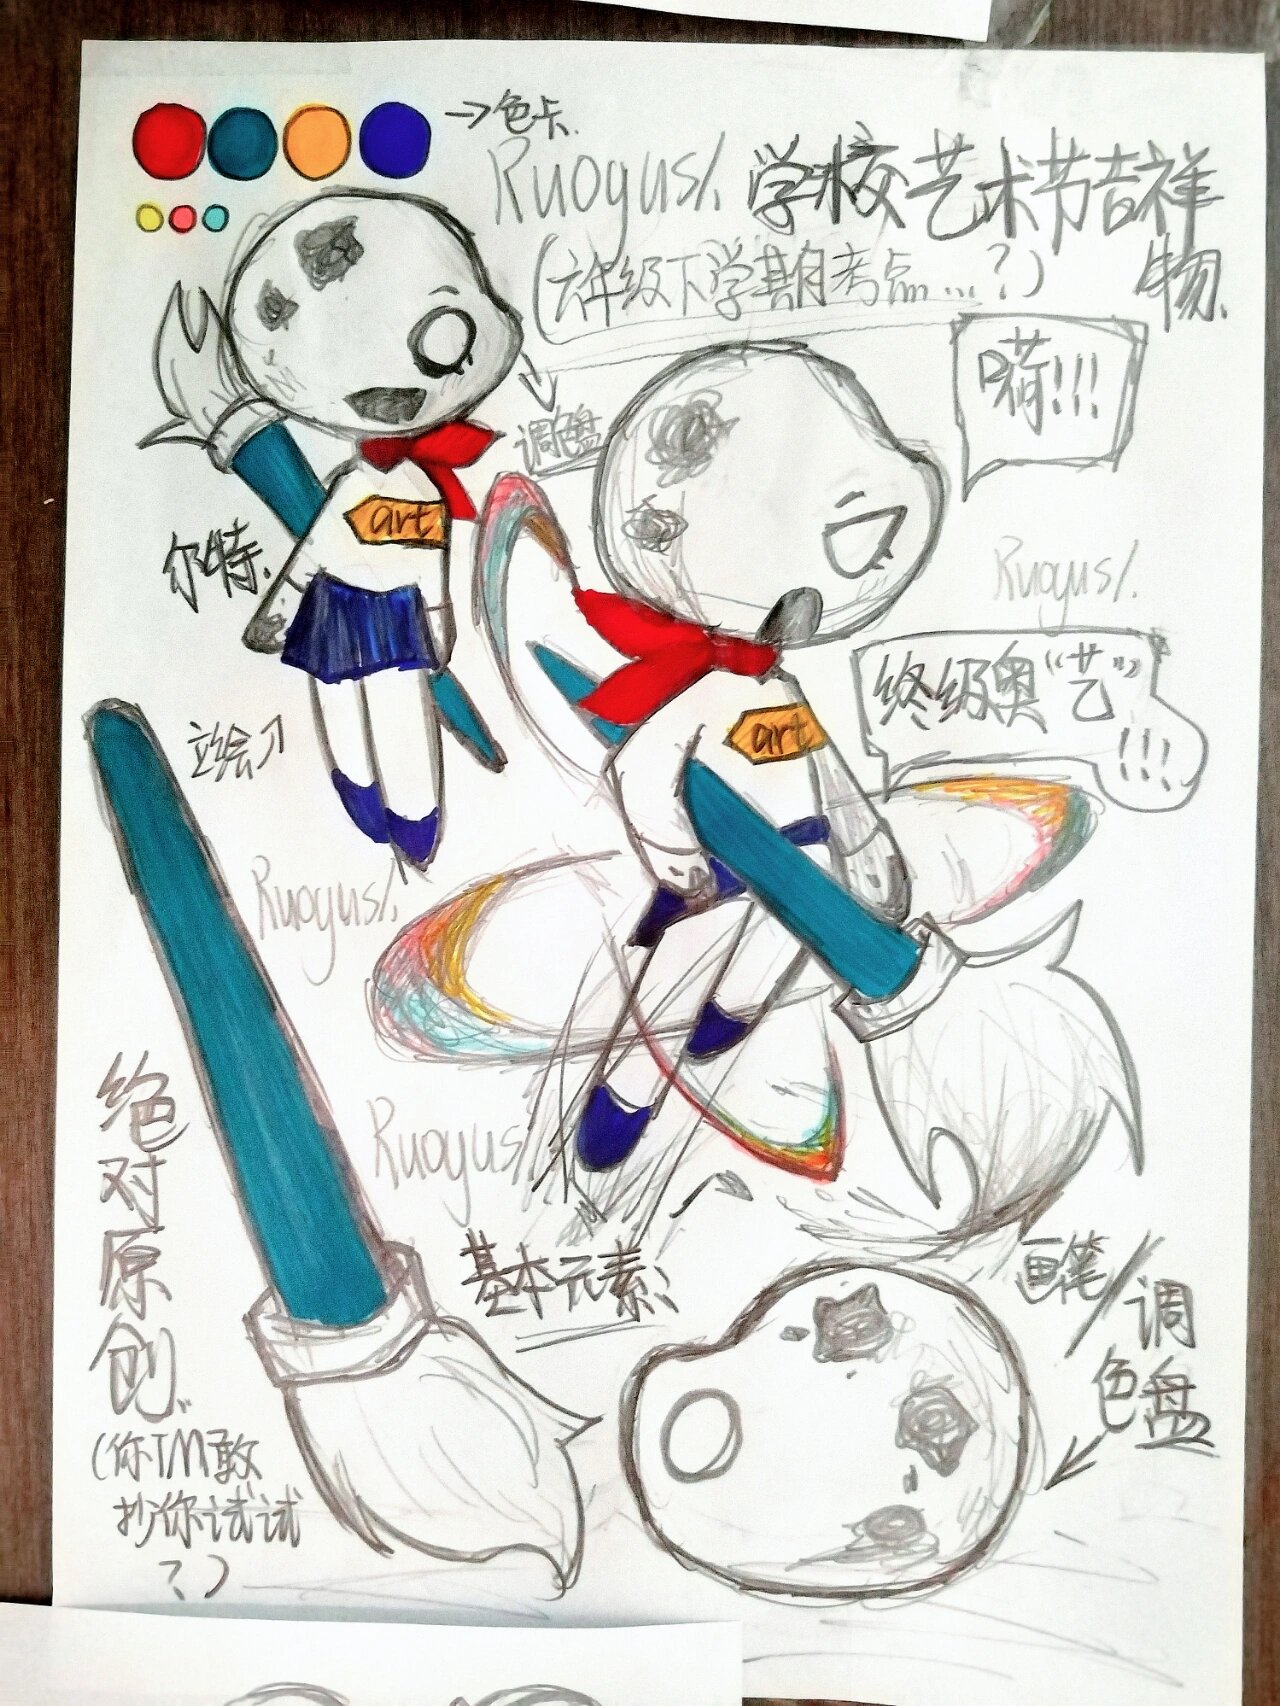 →色卡.
Ruogus/. 学校艺术节吉祥物.
(六年级下学期自考点...?)
嗬!!!
调色盘
art
尔特.
Ruogus/.
终级奥“艺”!!!
art
立绘
Ruogus/.
Ruogus/.
绝对原创.
(你TM敢
抄你试试
?)
基本元素:
画笔/调色盘